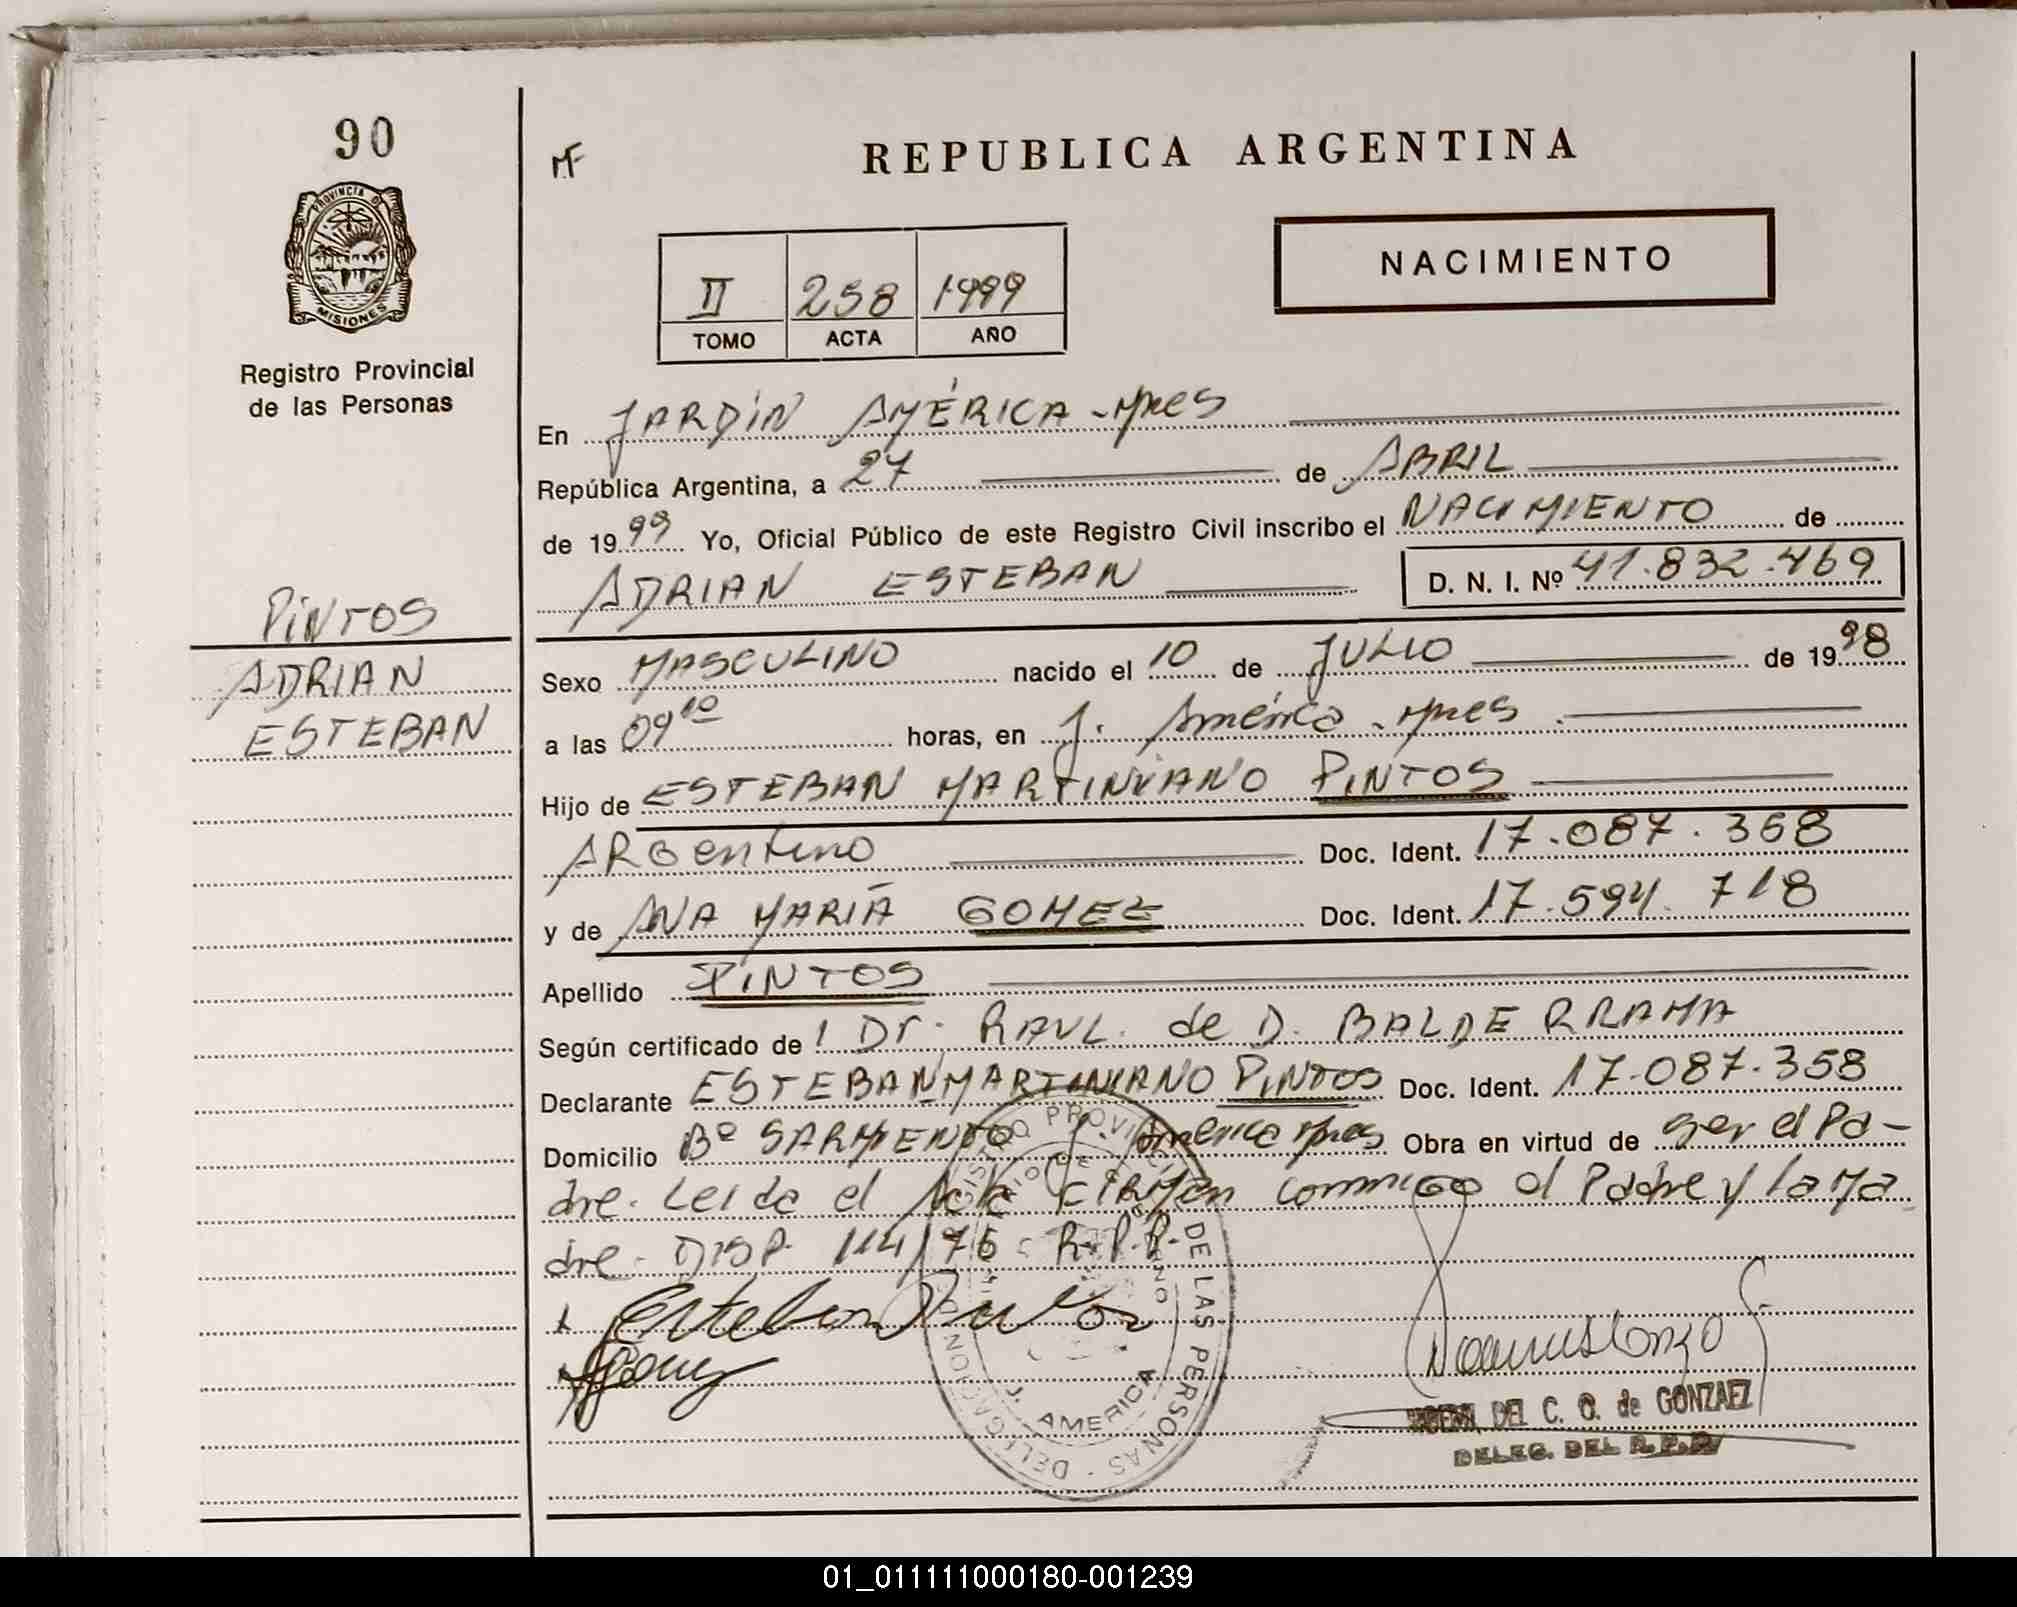 90
PROVINCIA DE
MISIONES
Registro Provincial
de las Personas
PINTOS
ADRIAN
ESTEBAN
MF
REPUBLICA ARGENTINA
NACIMIENTO
II 258 1999
TOMO ACTA AÑO
En JARDIN AMÉRICA - Mnes
República Argentina, a 27 de ABRIL
de 1999 Yo, Oficial Público de este Registro Civil inscribo el NACIMIENTO de
ADRIAN ESTEBAN D. N. I. Nº 41.832.469
Sexo MASCULINO nacido el 10 de JULIO de 1998
a las 09 10 horas, en J. América - Mnes.
Hijo de ESTEBAN MARTINIANO PINTOS
ARGentino Doc. Ident. 17.087.358
y de ANA MARIA GOMEZ Doc. Ident. 17.594.718
Apellido PINTOS
Según certificado de 1 Dr. RAUL de D. BALDERRAMA
Declarante ESTEBAN MARTINIANO PINTOS Doc. Ident. 17.087.358
Domicilio Bº SARMIENTO J. América Mnes Obra en virtud de ser el Pa-
dre. Leida el Acta FIRMAN conmigo el Padre y la Ma
dre - DISP. 114/75 R.P.P.
Esteban Pintos
AGomez
REGISTRO PROVINCIAL DE LAS PERSONAS - DELEGACION
J. AMERICA
DEL C. O. de GONZAEZ
DELEG. DEL R.P.P.
01_011111000180-001239